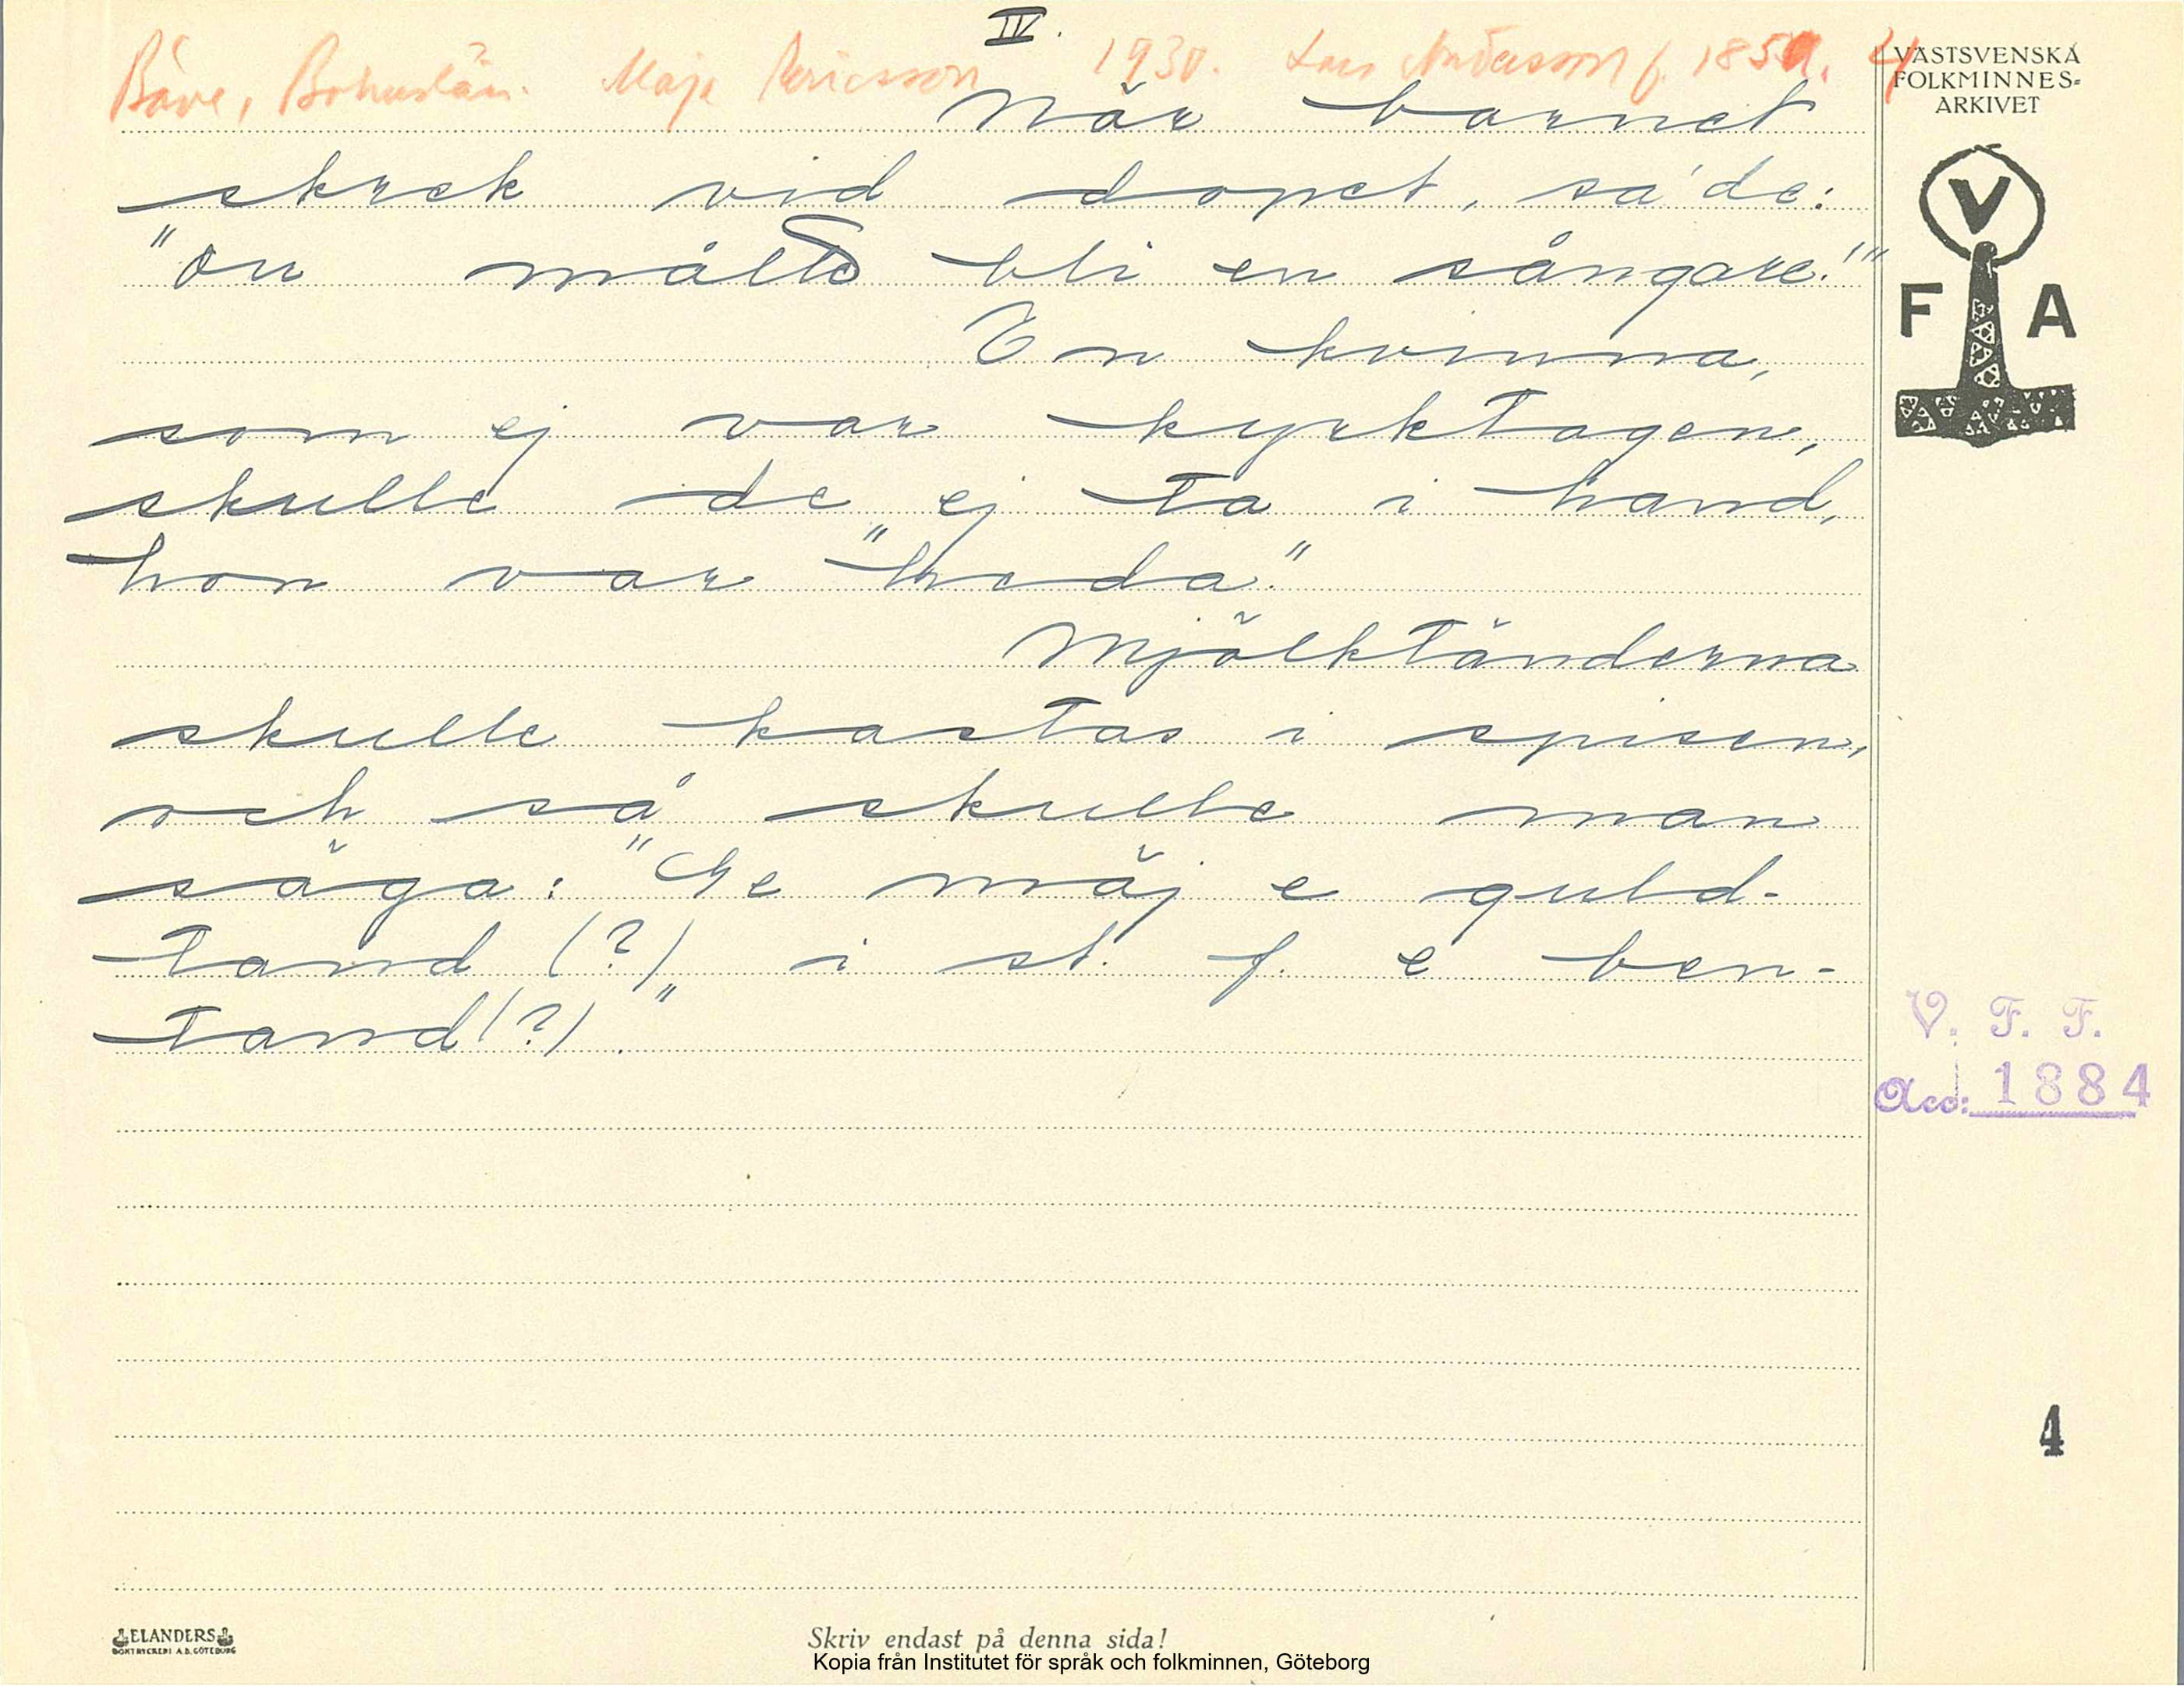 IV.
Bäve, Bohuslän. Maja Ericsson 1930. Lars Andersson f. 185 4
VÄSTSVENSKA
FOLKMINNES=
ARKIVET
När barnet
skrek vid dopet, sa' de:
"Du måtte bli en sångare!"
En kvinna,
som ej var kyrktagen,
skulle de ej ta i hand,
hon var "heda".
Mjölktänderna
skulle kastas i spisen,
och så skulle man
säga: "Ge mäj e guld-
tand (?) i st. f. e ben-
tand (?)".
V
F A
V. F. F.
Acc: 1884
4
ELANDERS
BOKTRYCKERI A.B. GÖTEBORG
Skriv endast på denna sida!
Kopia från Institutet för språk och folkminnen, Göteborg